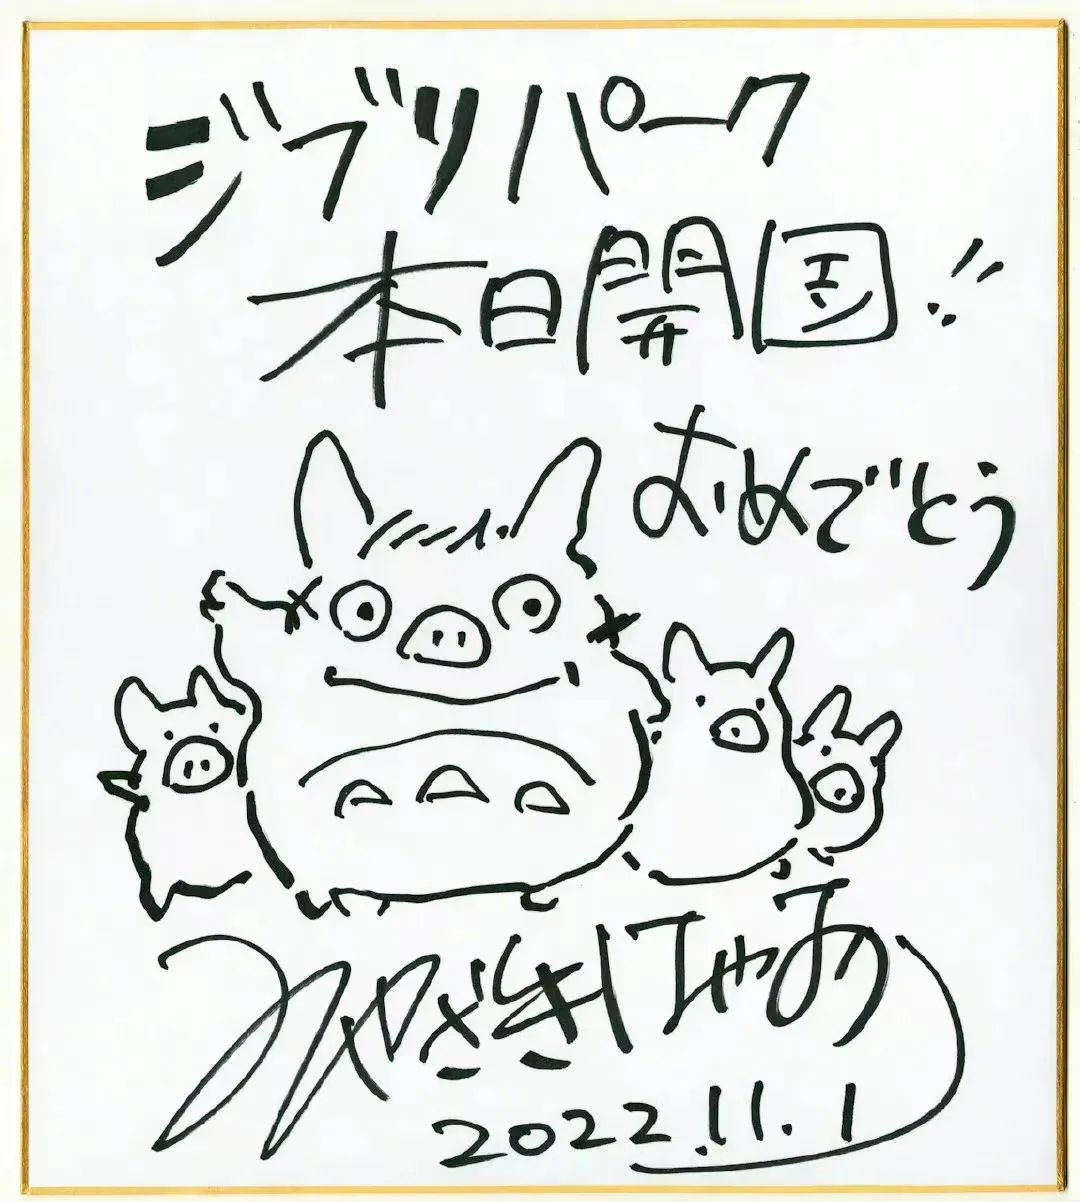 ジブリパーク
本日開園!!
おめでとう
みやざきはやお
2022.11.1